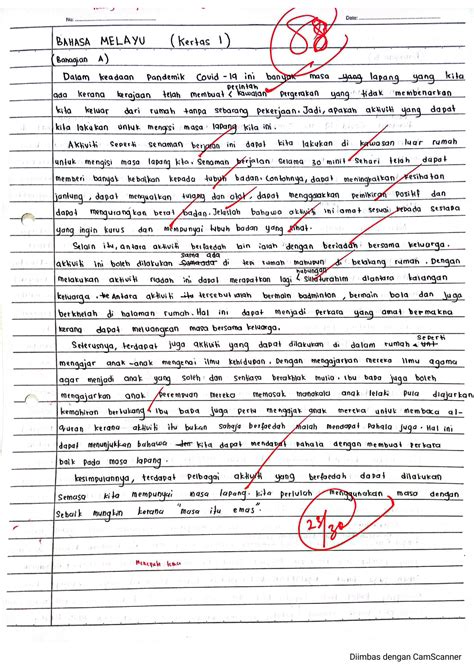 No:
Date:
BAHASA MELAYU (Kertas 1)
88
(Bahagian A)
Dalam keadaan Pandemik Covid-19 ini banyak masa yang lapang yang kita
Perintah
ada kerana kerajaan telah membuat kawalan Pergerakan yang tidak membenarkan
kita keluar dari rumah tanpa sebarang pekerjaan. Jadi, apakah aktiviti yang dapat
kita lakukan untuk mengisi masa lapang kita ini.
Aktiviti seperti senaman berjalan ini dapat kita lakukan di kawasan luar rumah
untuk mengisi masa lapang kita. Senaman berjalan selama 30 minit sehari telah dapat
memberi banyak kebaikan kepada tubuh badan. Contohnya, dapat meningkatkan kesihatan
jantung, dapat menguatkan tulang dan otot, dapat menggalakkan pemikiran Positif dan
dapat mengurangkan berat badan. Jelaslah bahawa aktiviti ini amat sesuai kepada sesiapa
yang ingin kurus dan mempunyai tubuh badan yang sihat.
Selain itu, antara aktiviti berfaedah lain ialah dengan beriadah bersama keluarga.
sama ada
aktiviti ini boleh dilakukan di rumah mahupun di belakang rumah. Dengan
hubungan
melakukan aktiviti riadah ini dapat merapatkan lagi Silaturahim diantara kalangan
keluarga. Antara aktiviti tersebut ialah bermain badminton, bermain bola dan juga
berkhelah di halaman rumah. Hal ini dapat menjadi Perkara yang amat bermakna
kerana dapat meluangkan masa bersama keluarga.
seperti
Seterusnya, terdapat juga aktiviti yang dapat dilakukan di dalam rumah
mengajar anak-anak mengenai ilmu kehidupan. Dengan mengajarkan mereka ilmu agama
agar menjadi anak yang soleh dan sentiasa berakhlak mulia. Ibu bapa juga boleh
mengajarkan anak perempuan mereka memasak manakala anak lelaki pula diajarkan
kemahiran bertukang. Ibu bapa juga perlu mengajak anak mereka untuk membaca al-
Quran kerana aktiviti itu bukan sahaja berfaedah malah mendapat Pahala juga. Hal ini
dapat menunjukkan bahawa kita dapat mendapat Pahala dengan membuat perkara
baik pada masa lapang.
Kesimpulannya, terdapat Pelbagai aktiviti yang berfaedah dapat dilakukan
Semasa kita mempunyai masa lapang. kita perlulah menggunakan masa dengan
Sebaik mungkin kerana "masa itu emas".
25/30
Diimbas dengan CamScanner